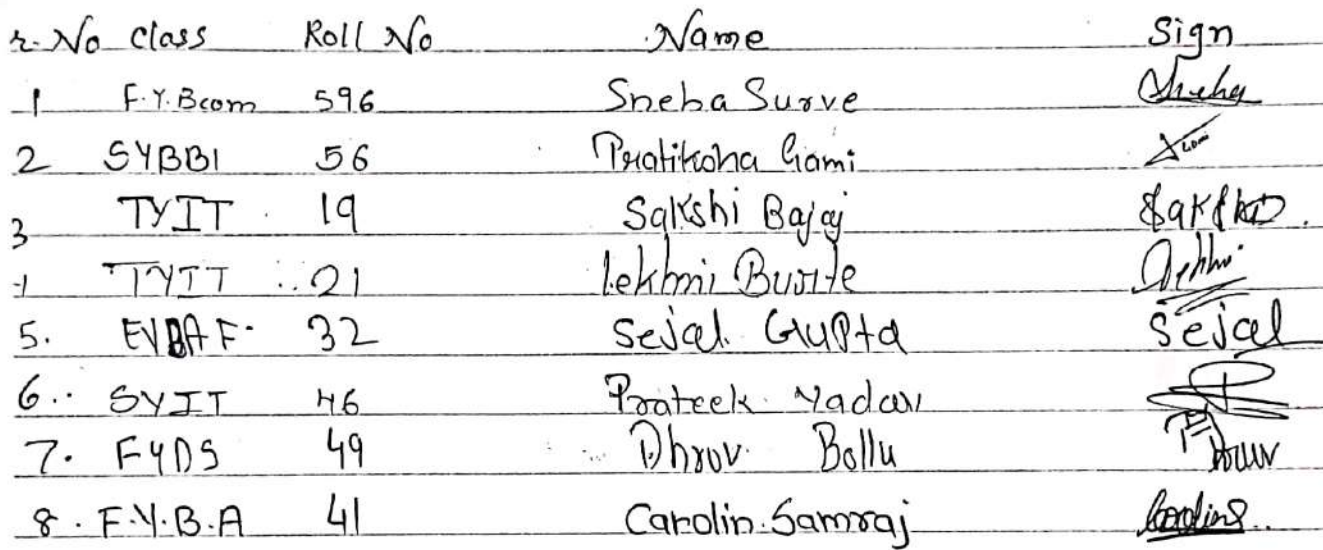 r. No Class Roll No Name Sign
1 F.Y.Bcom 596 Sneha Surve Sneha
2 SYBBI 56 Pratiksha Gami
3 TYIT 19 Sakshi Bajaj Sakshi
TYIT 21 Lekhni Burte
5. FYBAF 32 Sejal Gupta Sejal
6. SYIT 46 Prateek Yadav
7. FYDS 49 Dhruv Bollu Dhruv
8. F.Y.B.A 41 Carolin Samraj Caroline